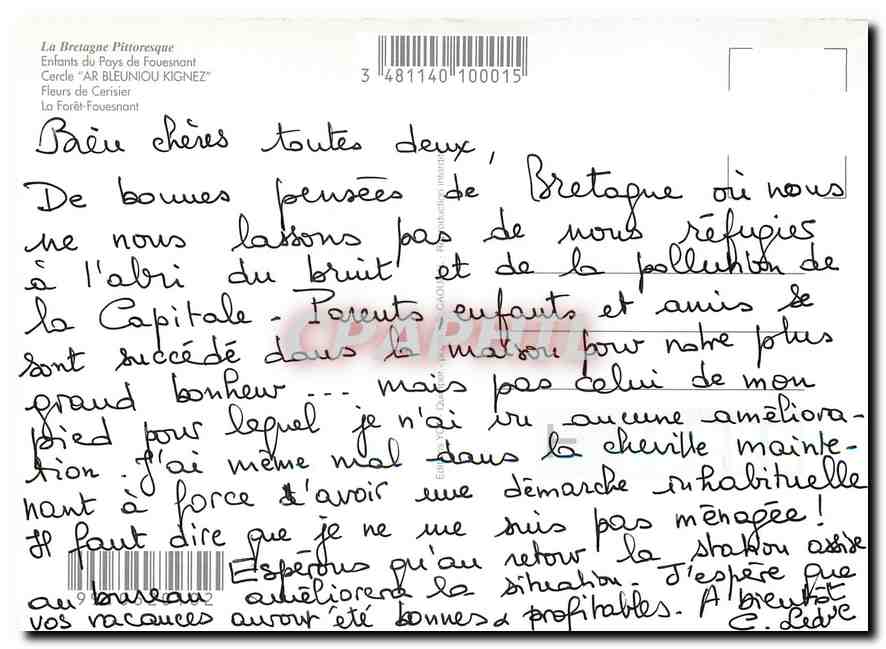 La Bretagne Pittoresque
Enfants du Pays de Fouesnant
Cercle "AR BLEUNIOU KIGNEZ"
Fleurs de Cerisier
La Forêt-Fouesnant
3 481140 100015
Bien chères toutes deux,
De bonnes pensées de Bretagne où nous
ne nous lassons pas de nous réfugier
à l'abri du bruit et de la pollution de
la Capitale - Parents, enfants et amis se
sont succédé dans la maison pour notre plus
grand bonheur ... mais pas celui de mon
pied pour lequel je n'ai vu aucune améliora-
tion. J'ai même mal dans la cheville mainte-
nant à force d'avoir une démarche inhabituelle
Il faut dire que je ne me suis pas ménagée!
Espérons qu'au retour la station assise
au bureau améliorera la situation. J'espère que
vos vacances auront été bonnes & profitables. A bientôt
C.
CPAPHIL
Reproduction interdite